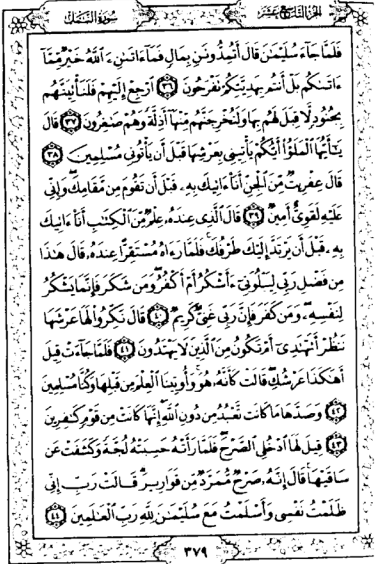 سورة النمل
الجزء التاسع عشر
فَلَمَّا جَاءَ سُلَيْمَٰنَ قَالَ أَتُمِدُّونَنِ بِمَالٍ فَمَا ءَاتَىٰنِۦَ ٱللَّهُ خَيْرٌ مِّمَّا
ءَاتَىٰكُم بَلْ أَنتُم بِهَدِيَّتِكُمْ تَفْرَحُونَ ٣٦ ٱرْجِعْ إِلَيْهِمْ فَلَنَأْتِيَنَّهُم
بِجُنُودٍ لَّا قِبَلَ لَهُم بِهَا وَلَنُخْرِجَنَّهُم مِّنْهَا أَذِلَّةً وَهُمْ صَٰغِرُونَ ٣٧ قَالَ
يَٰٓأَيُّهَا ٱلْمَلَؤُا۟ أَيُّكُمْ يَأْتِينِى بِعَرْشِهَا قَبْلَ أَن يَأْتُونِى مُسْلِمِينَ ٣٨
قَالَ عِفْرِيتٌ مِّنَ ٱلْجِنِّ أَنَا۠ ءَاتِيكَ بِهِۦ قَبْلَ أَن تَقُومَ مِن مَّقَامِكَ وَإِنِّى
عَلَيْهِ لَقَوِىٌّ أَمِينٌ ٣٩ قَالَ ٱلَّذِى عِندَهُۥ عِلْمٌ مِّنَ ٱلْكِتَٰبِ أَنَا۠ ءَاتِيكَ
بِهِۦ قَبْلَ أَن يَرْتَدَّ إِلَيْكَ طَرْفُكَ فَلَمَّا رَءَاهُ مُسْتَقِرًّا عِندَهُۥ قَالَ هَٰذَا
مِن فَضْلِ رَبِّى لِيَبْلُوَنِىٓ ءَأَشْكُرُ أَمْ أَكْفُرُ وَمَن شَكَرَ فَإِنَّمَا يَشْكُرُ
لِنَفْسِهِۦ وَمَن كَفَرَ فَإِنَّ رَبِّى غَنِىٌّ كَرِيمٌ ٤٠ قَالَ نَكِّرُوا۟ لَهَا عَرْشَهَا
نَنظُرْ أَتَهْتَدِىٓ أَمْ تَكُونُ مِنَ ٱلَّذِينَ لَا يَهْتَدُونَ ٤١ فَلَمَّا جَاءَتْ قِيلَ
أَهَٰكَذَا عَرْشُكِ قَالَتْ كَأَنَّهُۥ هُوَ وَأُوتِينَا ٱلْعِلْمَ مِن قَبْلِهَا وَكُنَّا مُسْلِمِينَ
٤٢ وَصَدَّهَا مَا كَانَت تَّعْبُدُ مِن دُونِ ٱللَّهِ إِنَّهَا كَانَتْ مِن قَوْمٍ كَٰفِرِينَ
٤٣ قِيلَ لَهَا ٱدْخُلِى ٱلصَّرْحَ فَلَمَّا رَأَتْهُ حَسِبَتْهُ لُجَّةً وَكَشَفَتْ عَن
سَاقَيْهَا قَالَ إِنَّهُۥ صَرْحٌ مُّمَرَّدٌ مِّن قَوَارِيرَ قَالَتْ رَبِّ إِنِّى
ظَلَمْتُ نَفْسِى وَأَسْلَمْتُ مَعَ سُلَيْمَٰنَ لِلَّهِ رَبِّ ٱلْعَٰلَمِينَ ٤٤
٣٧٩